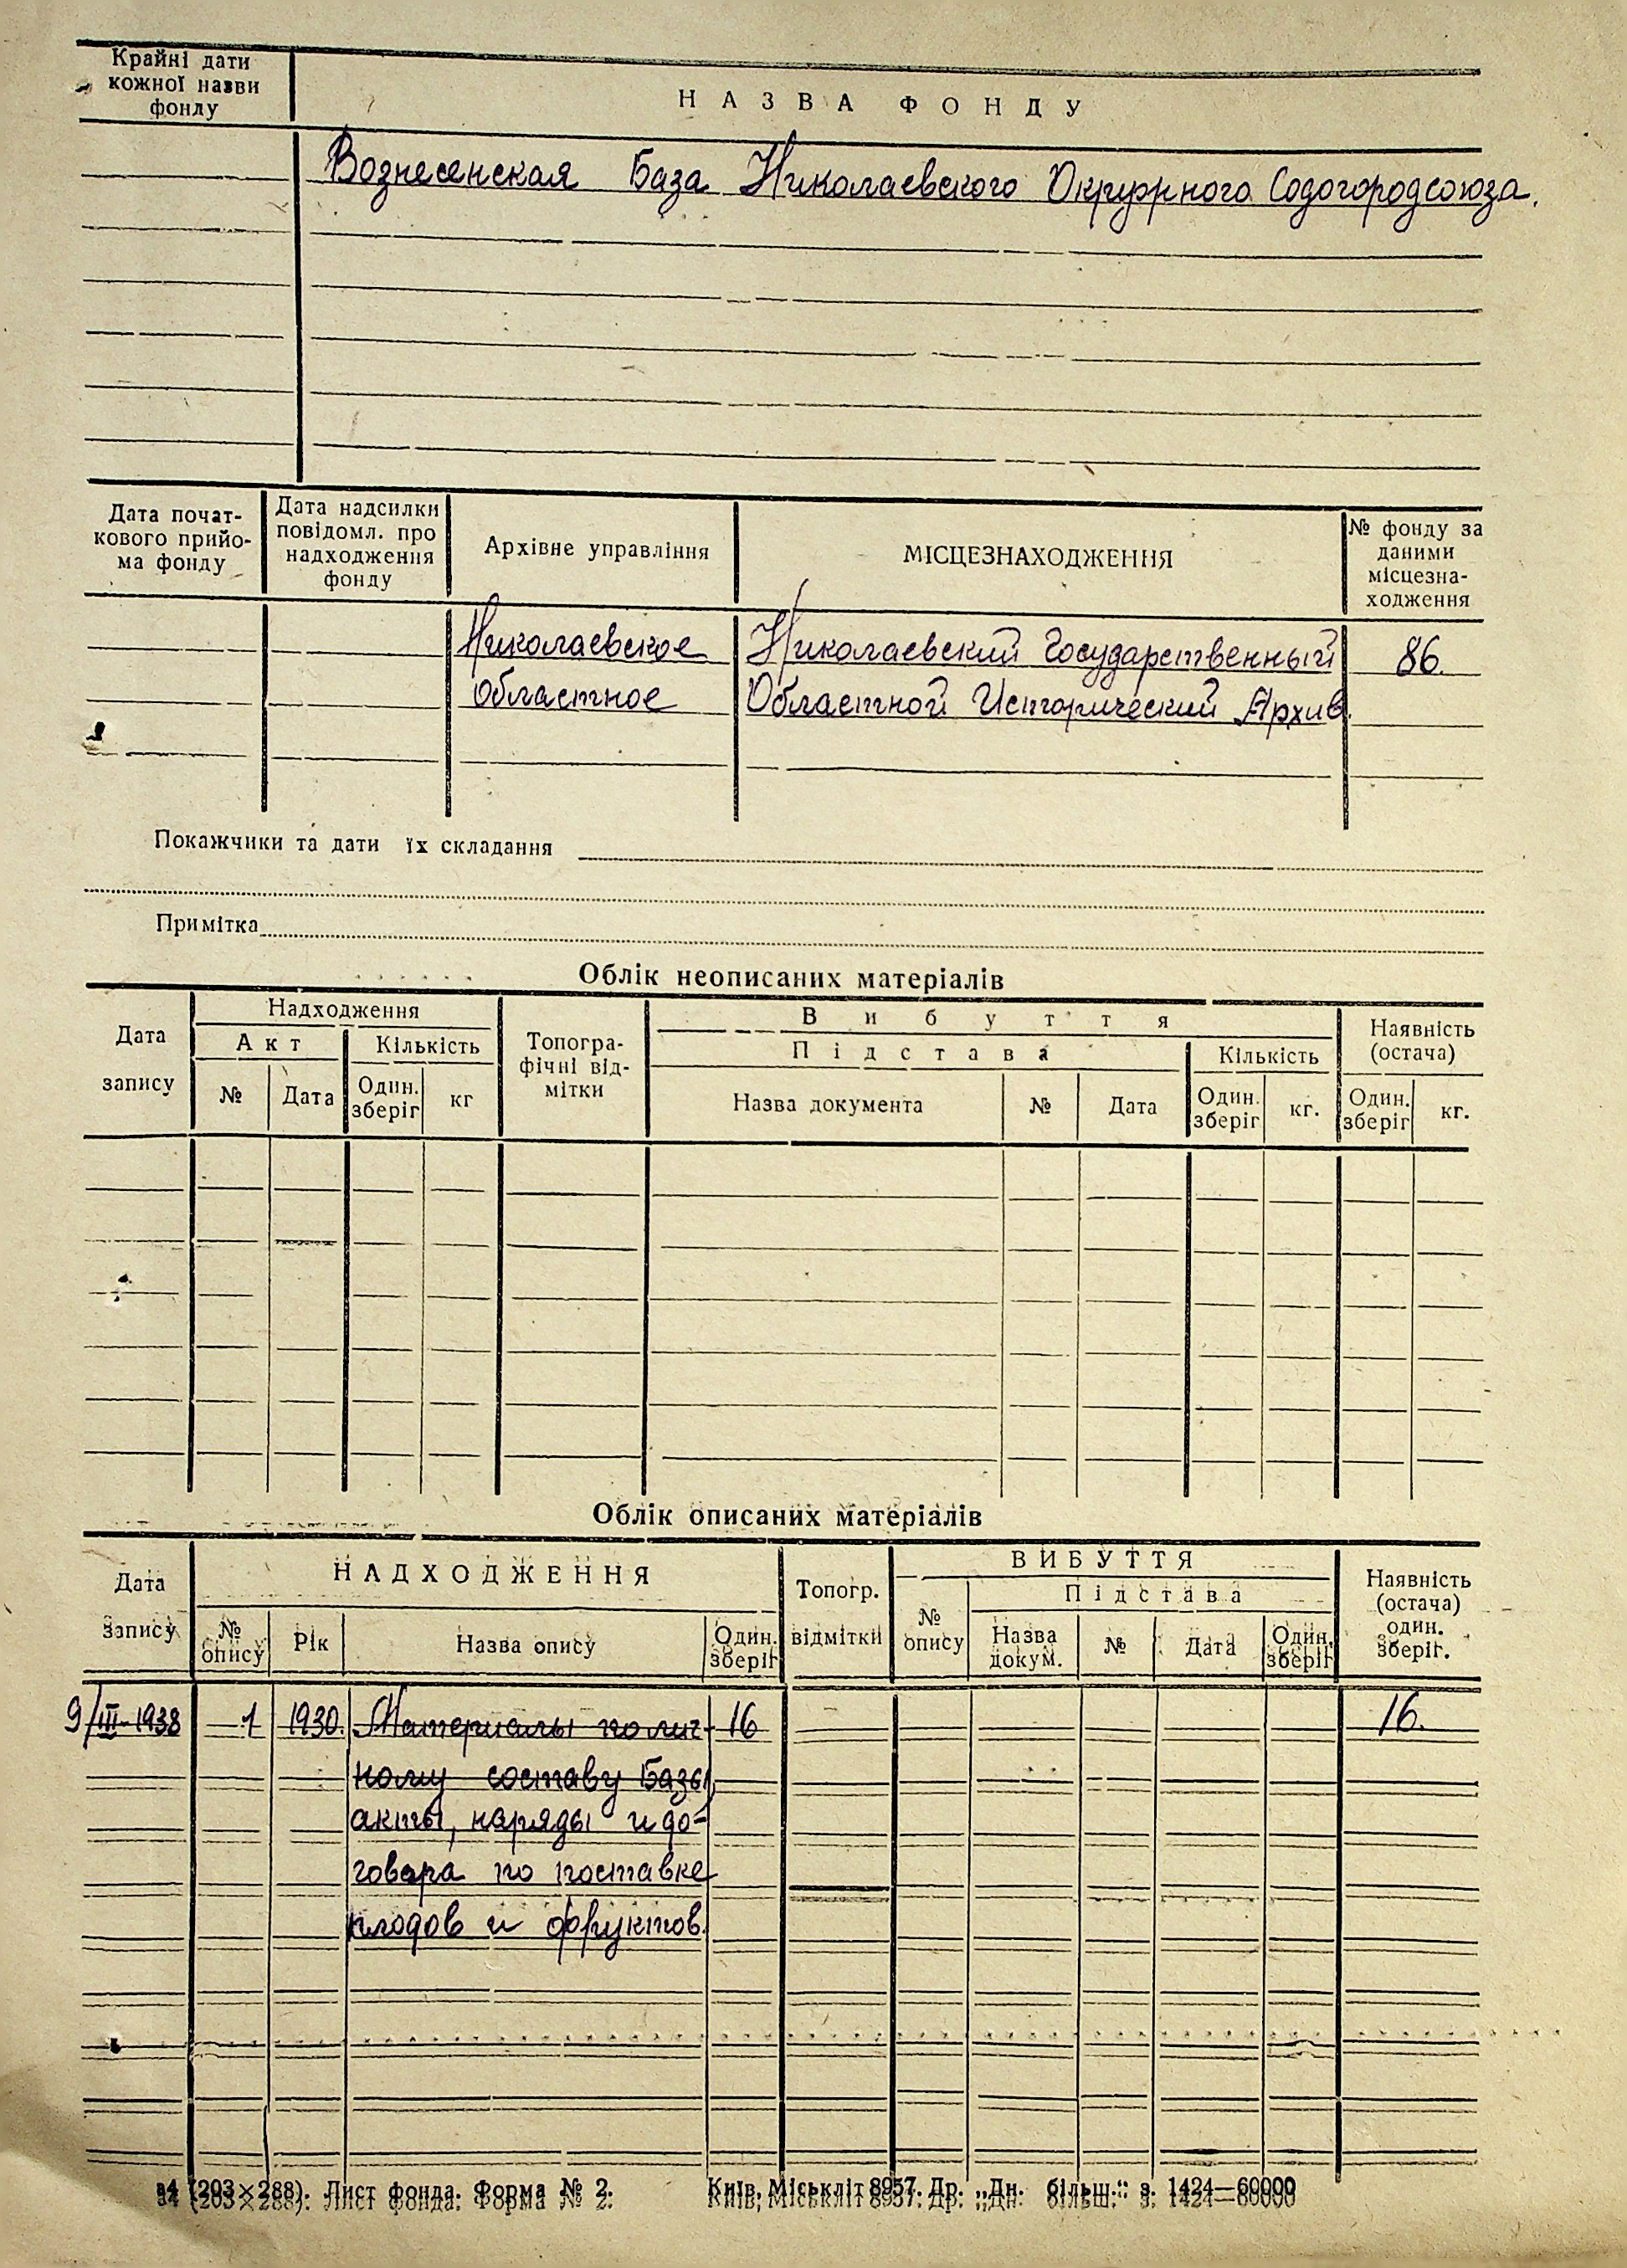 Крайні дати
кожної назви
фонду
НАЗВА ФОНДУ
Вознесенская База Николаевского Окружного Садогородсоюза.
Дата почат-
кового прийо-
ма фонду
Дата надсилки
повідомл. про
надходження
фонду
Архівне управління
МІСЦЕЗНАХОДЖЕННЯ
№ фонду за
даними
місцезна-
ходження
Николаевское
областное
Николаевский Государственный
Областной Исторический Архив.
86.
Покажчики та дати їх складання
Примітка
Облік неописаних матеріалів
Дата
запису
Надходження
Акт
Кількість
№
Дата
Один.
зберіг
кг
Топогра-
фічні від-
мітки
Вибуття
Підстава
Кількість
Назва документа
№
Дата
Один.
зберіг
кг.
Наявність
(остача)
Один.
зберіг
кг.
Облік описаних матеріалів
Дата
запису
НАДХОДЖЕННЯ
№
опису
Рік
Назва опису
Один.
зберіг
Топогр.
відмітки
ВИБУТТЯ
№
опису
Підстава
Назва
докум.
№
Дата
Один.
зберіг
Наявність
(остача)
один.
зберіг.
9/III-1938 1 1930. Материалы по лич- 16 16.
ному составу Базы,
акты, наряды и до-
говора по поставке
плодов и фруктов.
а4 (203×288). Лист фонда. Форма № 2. Київ, Міськліт 8957. Др. „Дн. більш.“ з. 1424—60000